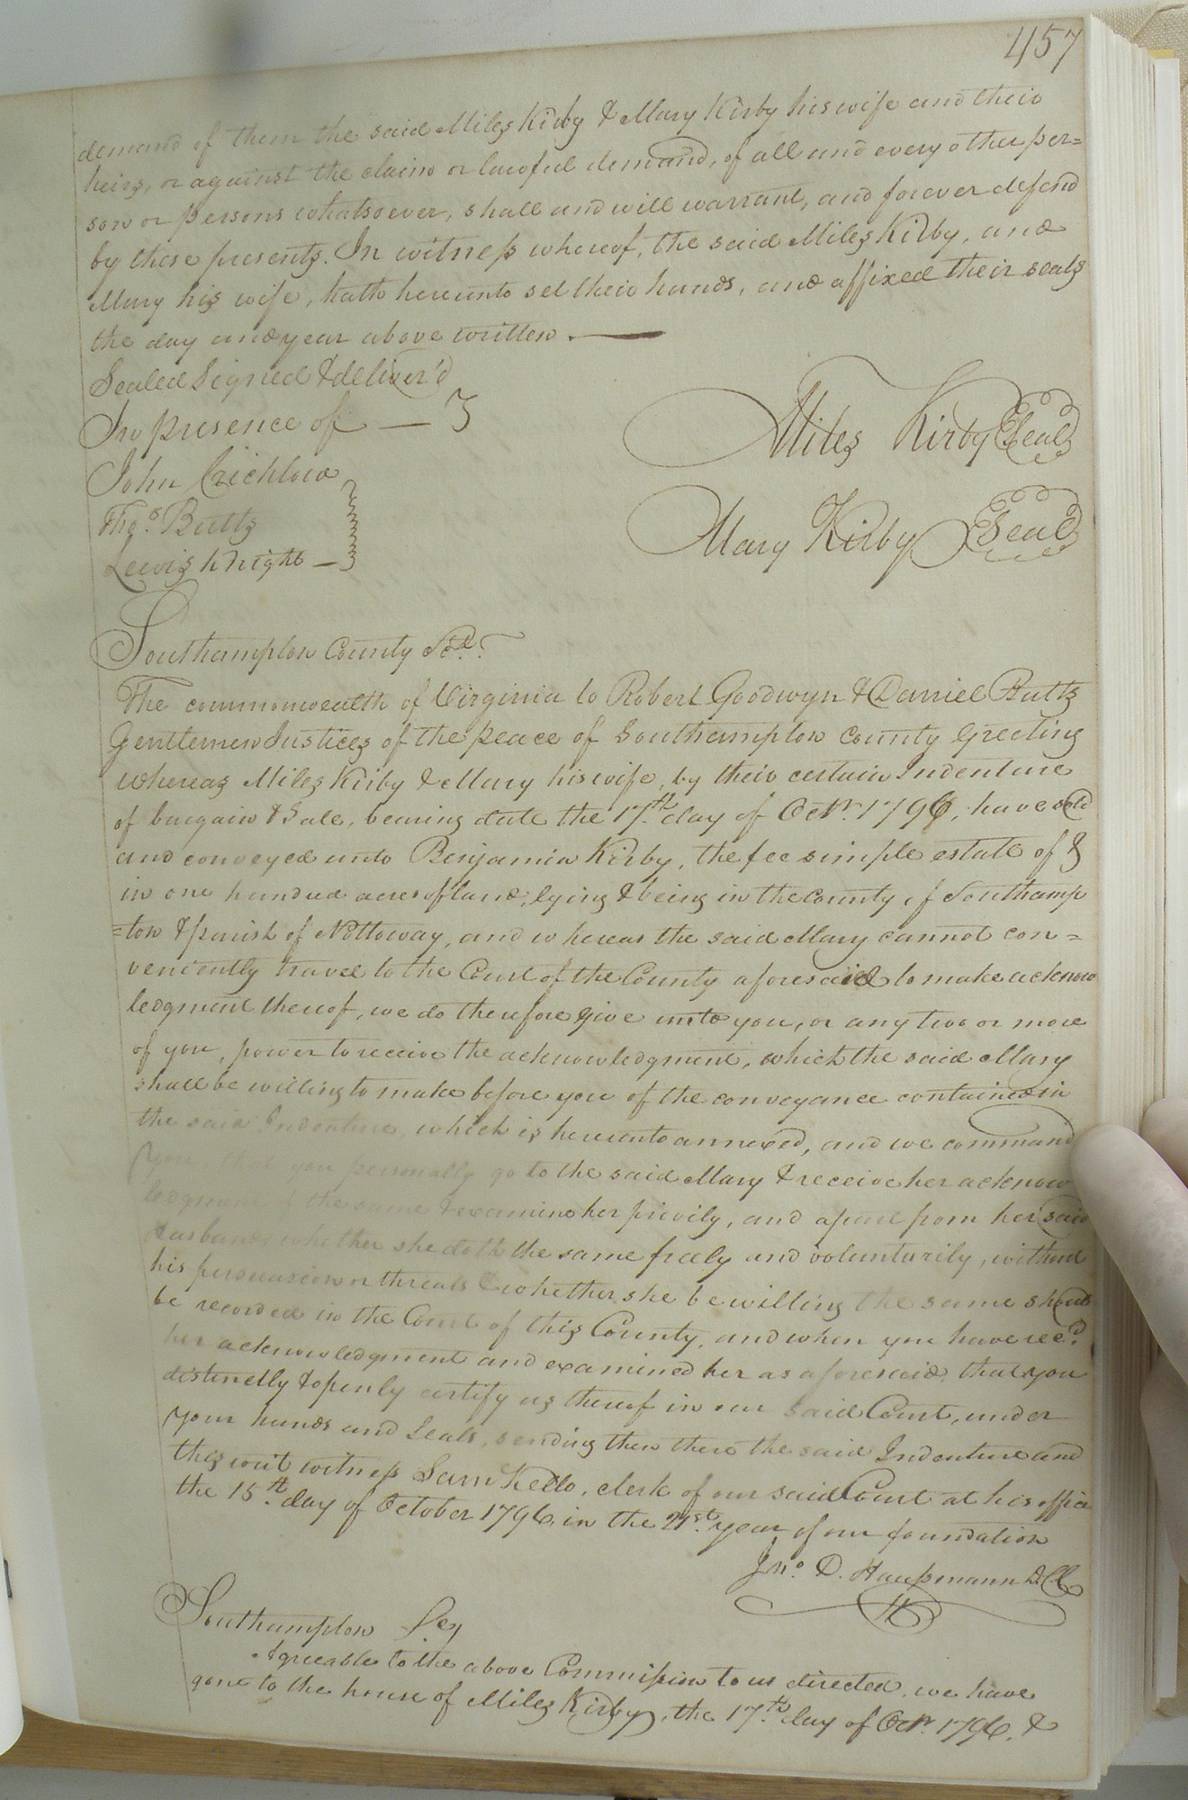 457
demand of them the said Miles Kirby & Mary Kirby his wife and their
heirs, or against the claim or lawful demand, of all and every other per=
son or persons whatsoever, shall and will warrant, and forever defend
by these presents. In witness whereof, the said Miles Kirby, and
Mary his wife, hath hereunto set their hands, and affixed their seals
the day and year above written.
Sealed Signed & deliver'd
In presence of
John Crichlow
Thos. Butts
Lewis Knight
Miles Kirby Seal
Mary Kirby Seal
Southampton County
The commonwealth of Virginia to Robert Goodwyn & Daniel Butts
Gentlemen Justices of the peace of Southampton County Greeting
whereas Miles Kirby & Mary his wife, by their certain Indenture
of bargain & Sale, bearing date the 17th day of Octr. 1796, have sold
and conveyed unto Benjamin Kirby, the fee simple estate of &
in one hundred acres of land, lying & being in the County of Southamp
=ton & parish of Nottoway, and whereas the said Mary cannot con=
veniently travel to the Court of the County aforesaid to make acknow
ledgment thereof, we do therefore give unto you, or any two or more
of you, power to receive the acknowledgment, which the said Mary
shall be willing to make before you of the conveyance contained in
the said Indenture, which is hereunto annexed, and we command
you that you personally go to the said Mary & receive her acknow
ledgment of the same & examine her privily, and apart from her said
Husband whether she doth the same freely and voluntarily, without
his persuasion or threats & whether she be willing the same should
be recorded in the Court of this County, and when you have recd.
her acknowledgment and examined her as aforesaid, that you
distinctly & openly certify us thereof in our said Court, under
your hands and Seals, sending then there the said Indenture and
this writ witness Sam Kello, clerk of our said Court at his office
the 15th day of October 1796 in the 21st year of our foundation
Jno. D. Haussmann D.Clk
Southampton
Agreeable to the above Commission to us directed, we have
gone to the house of Miles Kirby, the 17th day of Octr. 1796. &